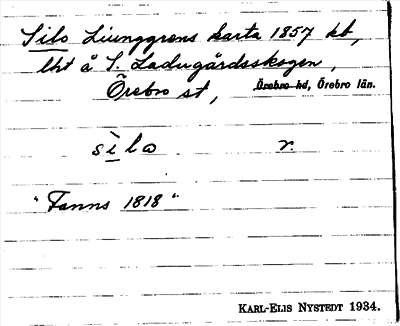 Silo Ljunggrens karta 1857 kb,
lht å S. Ladugårdsskogen,
Örebro st, Örebro hd, Örebro län.
sìlo r.
"Fanns 1818"
KARL-ELIS NYSTEDT 1934.